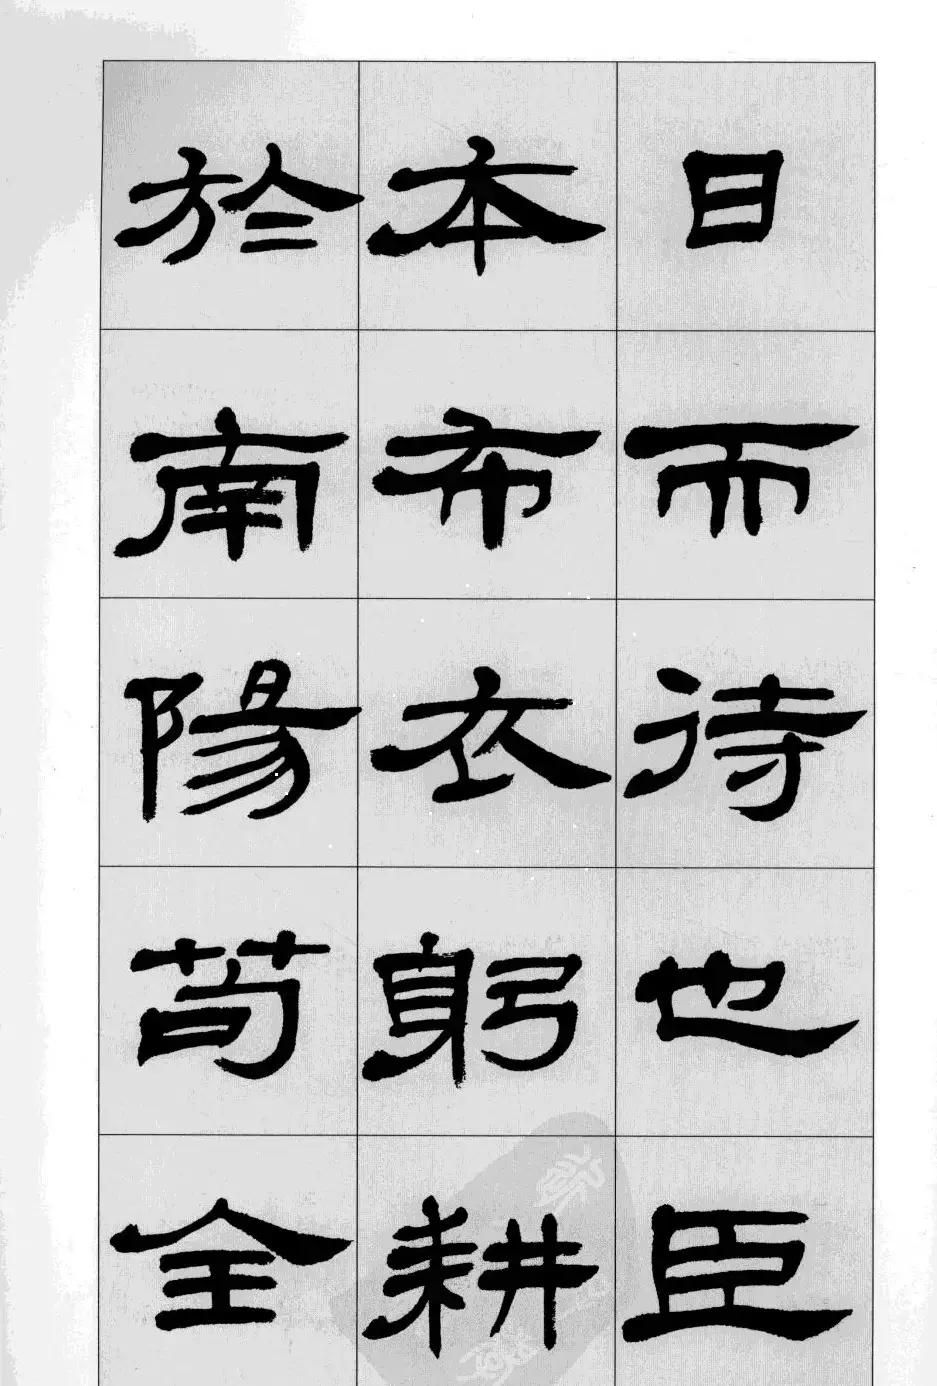 日而待也臣
本布衣躬耕
於南陽苟全